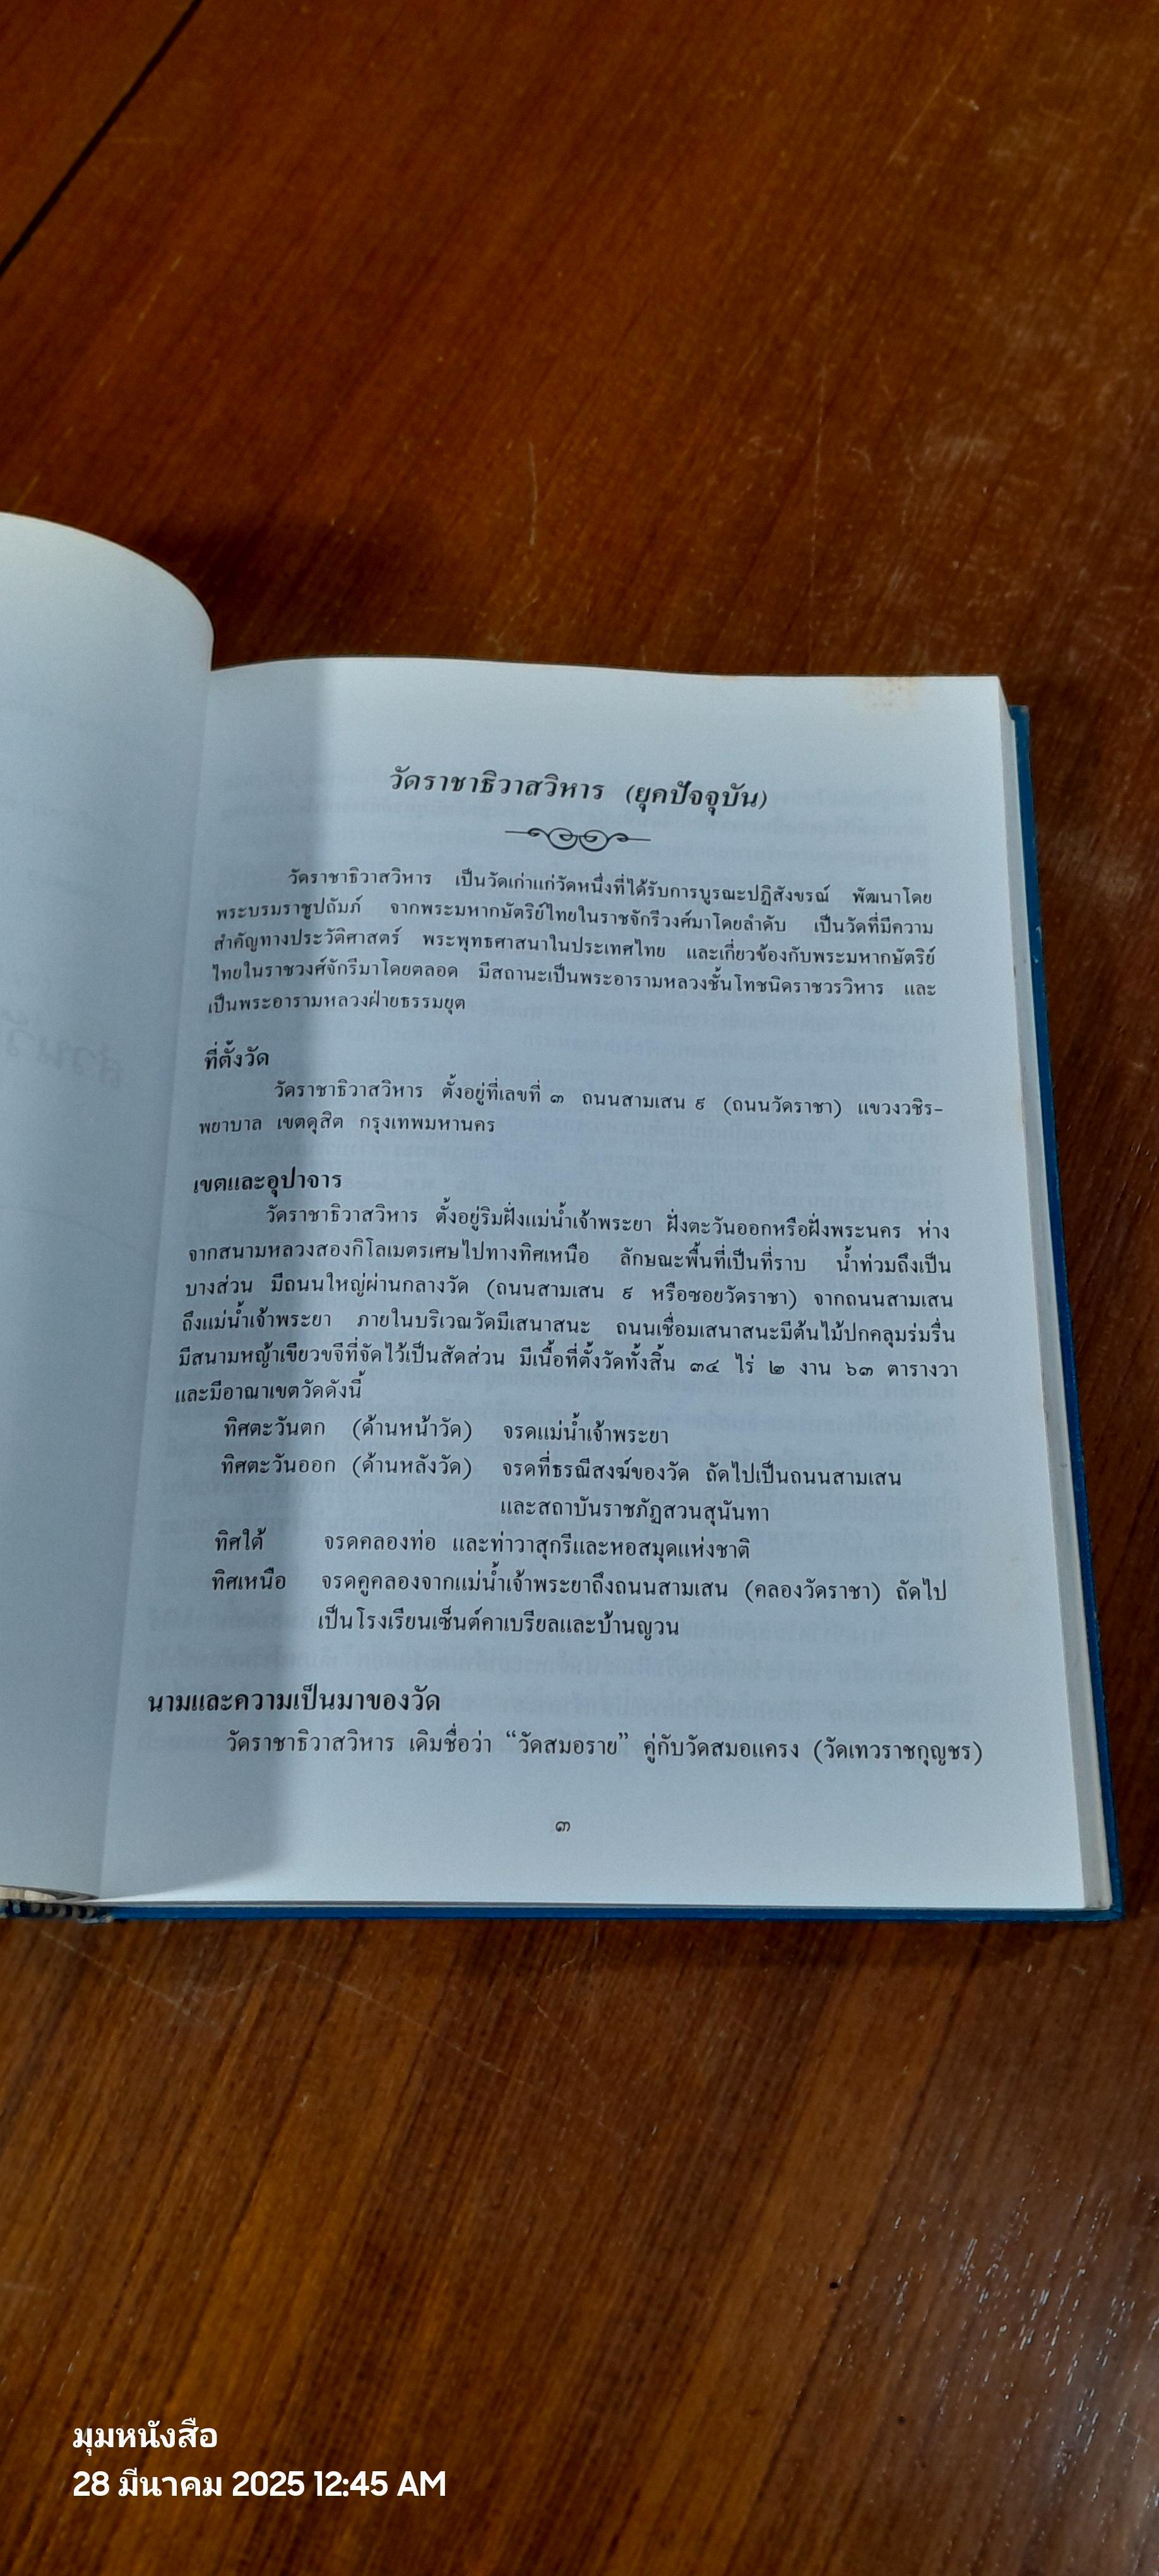 วัดราชาธิวาสวิหาร (ยุคปัจจุบัน)
วัดราชาธิวาสวิหาร เป็นวัดเก่าแก่วัดหนึ่งที่ได้รับการบูรณะปฏิสังขรณ์ พัฒนาโดย
พระบรมราชูปถัมภ์ จากพระมหากษัตริย์ไทยในราชจักรีวงศ์มาโดยลำดับ เป็นวัดที่มีความ
สำคัญทางประวัติศาสตร์ พระพุทธศาสนาในประเทศไทย และเกี่ยวข้องกับพระมหากษัตริย์
ไทยในราชวงศ์จักรีมาโดยตลอด มีสถานะเป็นพระอารามหลวงชั้นโทชนิดราชวรวิหาร และ
เป็นพระอารามหลวงฝ่ายธรรมยุต
ที่ตั้งวัด
วัดราชาธิวาสวิหาร ตั้งอยู่ที่เลขที่ ๓ ถนนสามเสน ๙ (ถนนวัดราชา) แขวงวชิร-
พยาบาล เขตดุสิต กรุงเทพมหานคร
เขตและอุปาจาร
วัดราชาธิวาสวิหาร ตั้งอยู่ริมฝั่งแม่น้ำเจ้าพระยา ฝั่งตะวันออกหรือฝั่งพระนคร ห่าง
จากสนามหลวงสองกิโลเมตรเศษไปทางทิศเหนือ ลักษณะพื้นที่เป็นที่ราบ น้ำท่วมถึงเป็น
บางส่วน มีถนนใหญ่ผ่านกลางวัด (ถนนสามเสน ๙ หรือซอยวัดราชา) จากถนนสามเสน
ถึงแม่น้ำเจ้าพระยา ภายในบริเวณวัดมีเสนาสนะ ถนนเชื่อมเสนาสนะมีต้นไม้ปกคลุมร่มรื่น
มีสนามหญ้าเขียวขจีที่จัดไว้เป็นสัดส่วน มีเนื้อที่ตั้งวัดทั้งสิ้น ๓๔ ไร่ ๒ งาน ๖๓ ตารางวา
และมีอาณาเขตวัดดังนี้
ทิศตะวันตก (ด้านหน้าวัด) จรดแม่น้ำเจ้าพระยา
ทิศตะวันออก (ด้านหลังวัด) จรดที่ธรณีสงฆ์ของวัด ถัดไปเป็นถนนสามเสน
และสถาบันราชภัฏสวนสุนันทา
ทิศใต้ จรดคลองท่อ และท่าวาสุกรีและหอสมุดแห่งชาติ
ทิศเหนือ จรดคูคลองจากแม่น้ำเจ้าพระยาถึงถนนสามเสน (คลองวัดราชา) ถัดไป
เป็นโรงเรียนเซ็นต์คาเบรียลและบ้านญวน
นามและความเป็นมาของวัด
วัดราชาธิวาสวิหาร เดิมชื่อว่า “วัดสมอราย” คู่กับวัดสมอแครง (วัดเทวราชกุญชร)
๓
มุมหนังสือ
28 มีนาคม 2025 12:45 AM